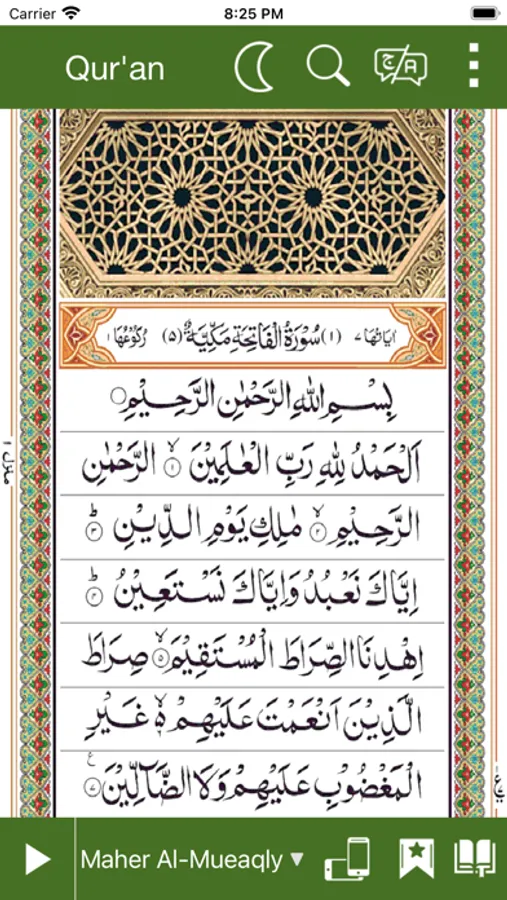 Carrier 8:25 PM
Qur'an
ایاتہا ۷ (۱) سُوْرَةُ الْفَاتِحَةِ مَكِّيَّةٌ (۵) رکوعہا ۱
بِسْمِ اللهِ الرَّحْمٰنِ الرَّحِيْمِ
اَلْحَمْدُ لِلّٰهِ رَبِّ الْعٰلَمِيْنَ ۙ۱ الرَّحْمٰنِ
الرَّحِيْمِ ۙ۲ مٰلِكِ يَوْمِ الدِّيْنِ ؕ۳
اِيَّاكَ نَعْبُدُ وَاِيَّاكَ نَسْتَعِيْنُ ؕ۴
اِهْدِنَا الصِّرَاطَ الْمُسْتَقِيْمَ ۙ۵ صِرَاطَ
الَّذِيْنَ اَنْعَمْتَ عَلَيْهِمْ ۙ۬ۦ غَيْرِ
الْمَغْضُوْبِ عَلَيْهِمْ وَلَا الضَّآلِّيْنَ ۷
منزل ۱
Maher Al-Mueaqly ▼